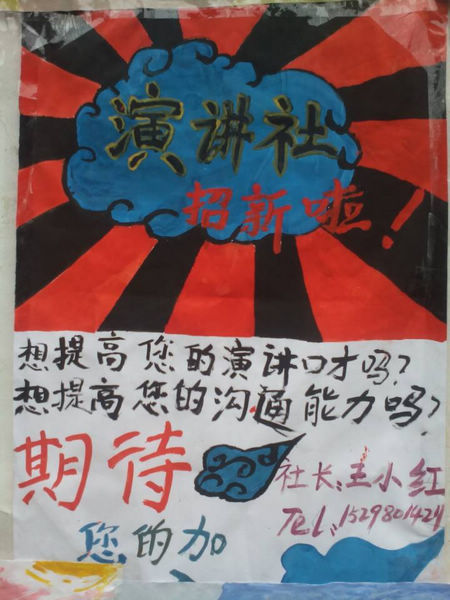 演讲社
招新啦！
想提高您的演讲口才吗？
想提高您的沟通能力吗？
期待
社长：王小红
Tel:
您的加